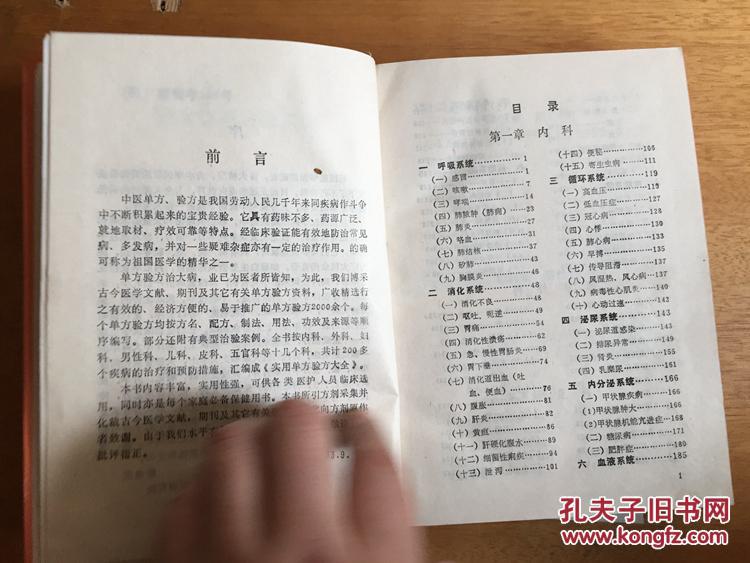 前言
中医单方、验方是我国劳动人民几千年来同疾病作斗争
中不断积累起来的宝贵经验。它具有药味不多、药源广泛、
就地取材、疗效可靠等特点。经临床验证能有效地防治常见
病、多发病，并对一些疑难杂症亦有一定的治疗作用。的确
可称为祖国医学的精华之一。
单方验方治大病，业已为医者所皆知，为此，我们博采
古今医学文献、期刊及其它有关单方验方资料，广收精选行
之有效的、经济方便的、易于推广的单方验方2000余个。每
个单方验方均按方名、配方、制法、用法、功效及来源等顺
序编写。部分还附有典型治验案例。全书按内科、外科、妇
科、男性科、儿科、皮科、五官科等十几个科，共计200多
个疾病的治疗和预防措施，汇编成《实用单方验方大全》。
本书内容丰富，实用性强，可供各类医护人员临床选
用，同时亦是每个家庭必备保健用书。本书所引方剂采集并
化裁古今医学文献，期刊及其它有关 向方剂原作
者致谢。由于我们水平
批评指正。
3.9.
目录
第一章 内科
一 呼吸系统……1
（一）感冒……1
（二）咳嗽……7
（三）哮喘……14
（四）肺脓肿（肺痈）……23
（五）肺炎……27
（六）咯血……31
（七）肺结核……37
（八）矽肺……44
（九）胸膜炎……45
二 消化系统……48
（一）消化不良……48
（二）呕吐、呃逆……49
（三）胃痛……54
（四）消化性溃疡……61
（五）急、慢性胃肠炎……63
（六）胃下垂……64
（七）消化道出血（吐
血、便血）……67
（八）腹胀……71
（九）肝炎……72
（十）黄疸……82
（十一）肝硬化腹水……86
（十二）细菌性痢疾……94
（十三）泄泻……101
（十四）便秘……106
（十五）寄生虫病……111
三 循环系统……119
（一）高血压……119
（二）低血压症……126
（三）冠心病……127
（四）心悸……131
（五）肺心病……133
（六）早搏……135
（七）传导阻滞……137
（八）风湿热、风心病……139
（九）病毒性心肌炎……141
（十）心动过速……142
四 泌尿系统……143
（一）泌尿道感染……143
（二）排尿异常……149
（三）肾炎……154
（四）乳糜尿……163
五 内分泌系统……166
（一）甲状腺疾病……166
(1)甲状腺肿大……166
(2)甲状腺机能亢进症……169
（二）糖尿病……171
（三）肥胖症……183
六 血液系统……185
1
孔夫子旧书网
www.kongfz.com